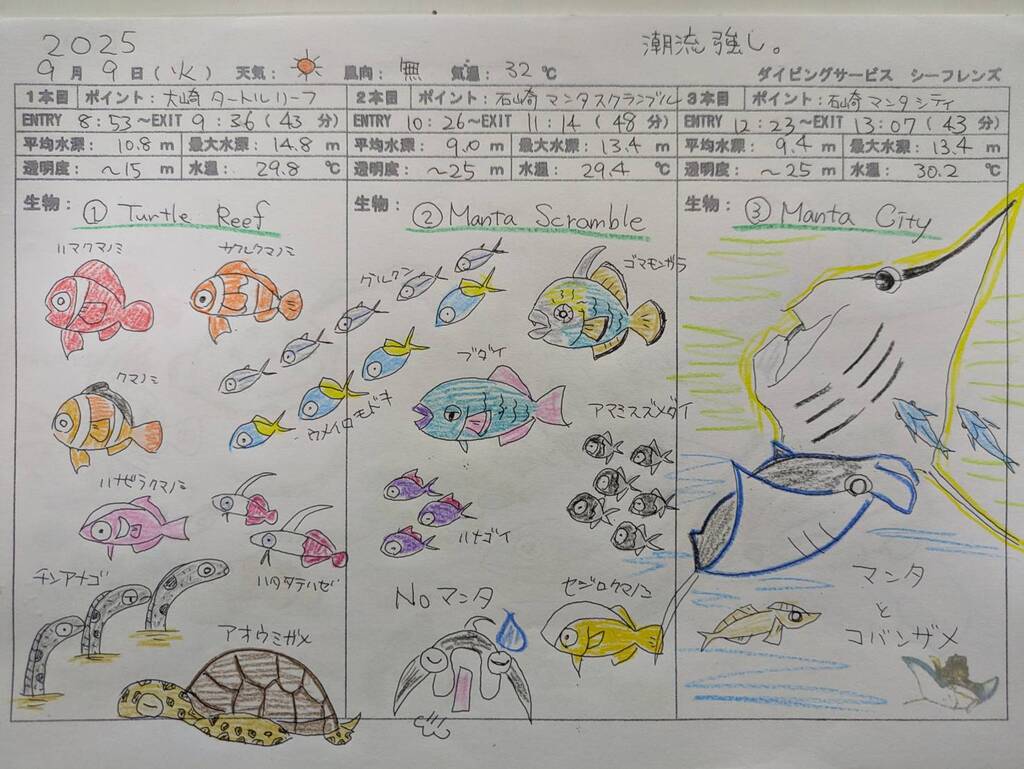 2025
潮流強し。
9月9日(火) 天気: 風向: 無 気温: 32℃
ダイビングサービス シーフレンズ
1本目 ポイント: 大崎 タートルリーフ
ENTRY 8:53~EXIT 9:36(43分)
平均水深: 10.8m 最大水深: 14.8m
透明度: ~15m 水温: 29.8℃
生物: ① Turtle Reef
ハマクマノミ
カクレクマノミ
クマノミ
ウメイロモドキ
ハナビラクマノミ
チンアナゴ
ハタタテハゼ
アオウミガメ
2本目 ポイント: 石崎 マンタスクランブル
ENTRY 10:26~EXIT 11:14(48分)
平均水深: 9.0m 最大水深: 13.4m
透明度: ~25m 水温: 29.4℃
生物: ② Manta Scramble
グルクン
ゴマモンガラ
ブダイ
アマミスズメダイ
ハナゴイ
Noマンタ
セジロクマノミ
3本目 ポイント: 石崎 マンタシティ
ENTRY 12:23~EXIT 13:07(43分)
平均水深: 9.4m 最大水深: 13.4m
透明度: ~25m 水温: 30.2℃
生物: ③ Manta City
マンタ
と
コバンザメ